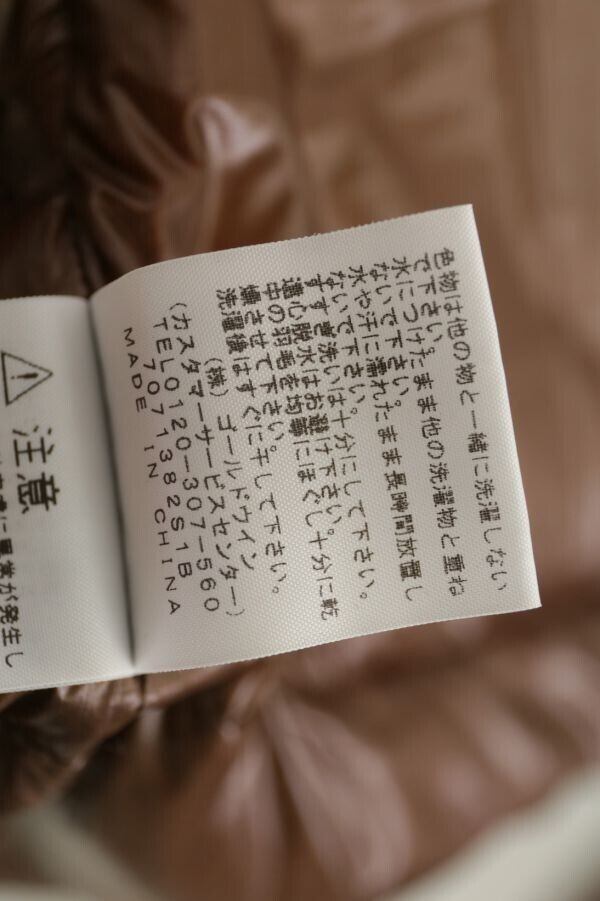 色物は他の物と一緒に洗濯しない
で下さい。
水につけたまま他の洗濯物と重ね
ないで下さい。
水や汗に濡れたまま長時間放置し
ないで下さい。
すすぎ洗いは十分にして下さい。
遠心脱水はお避け下さい。
中の羽毛を均等にほぐし十分に乾
燥させて下さい。
洗濯後はすぐに干して下さい。
(株) ゴールドウイン
(カスタマーサービスセンター)
TEL0120-307-560
7071382S1B
MADE IN CHINA
注意